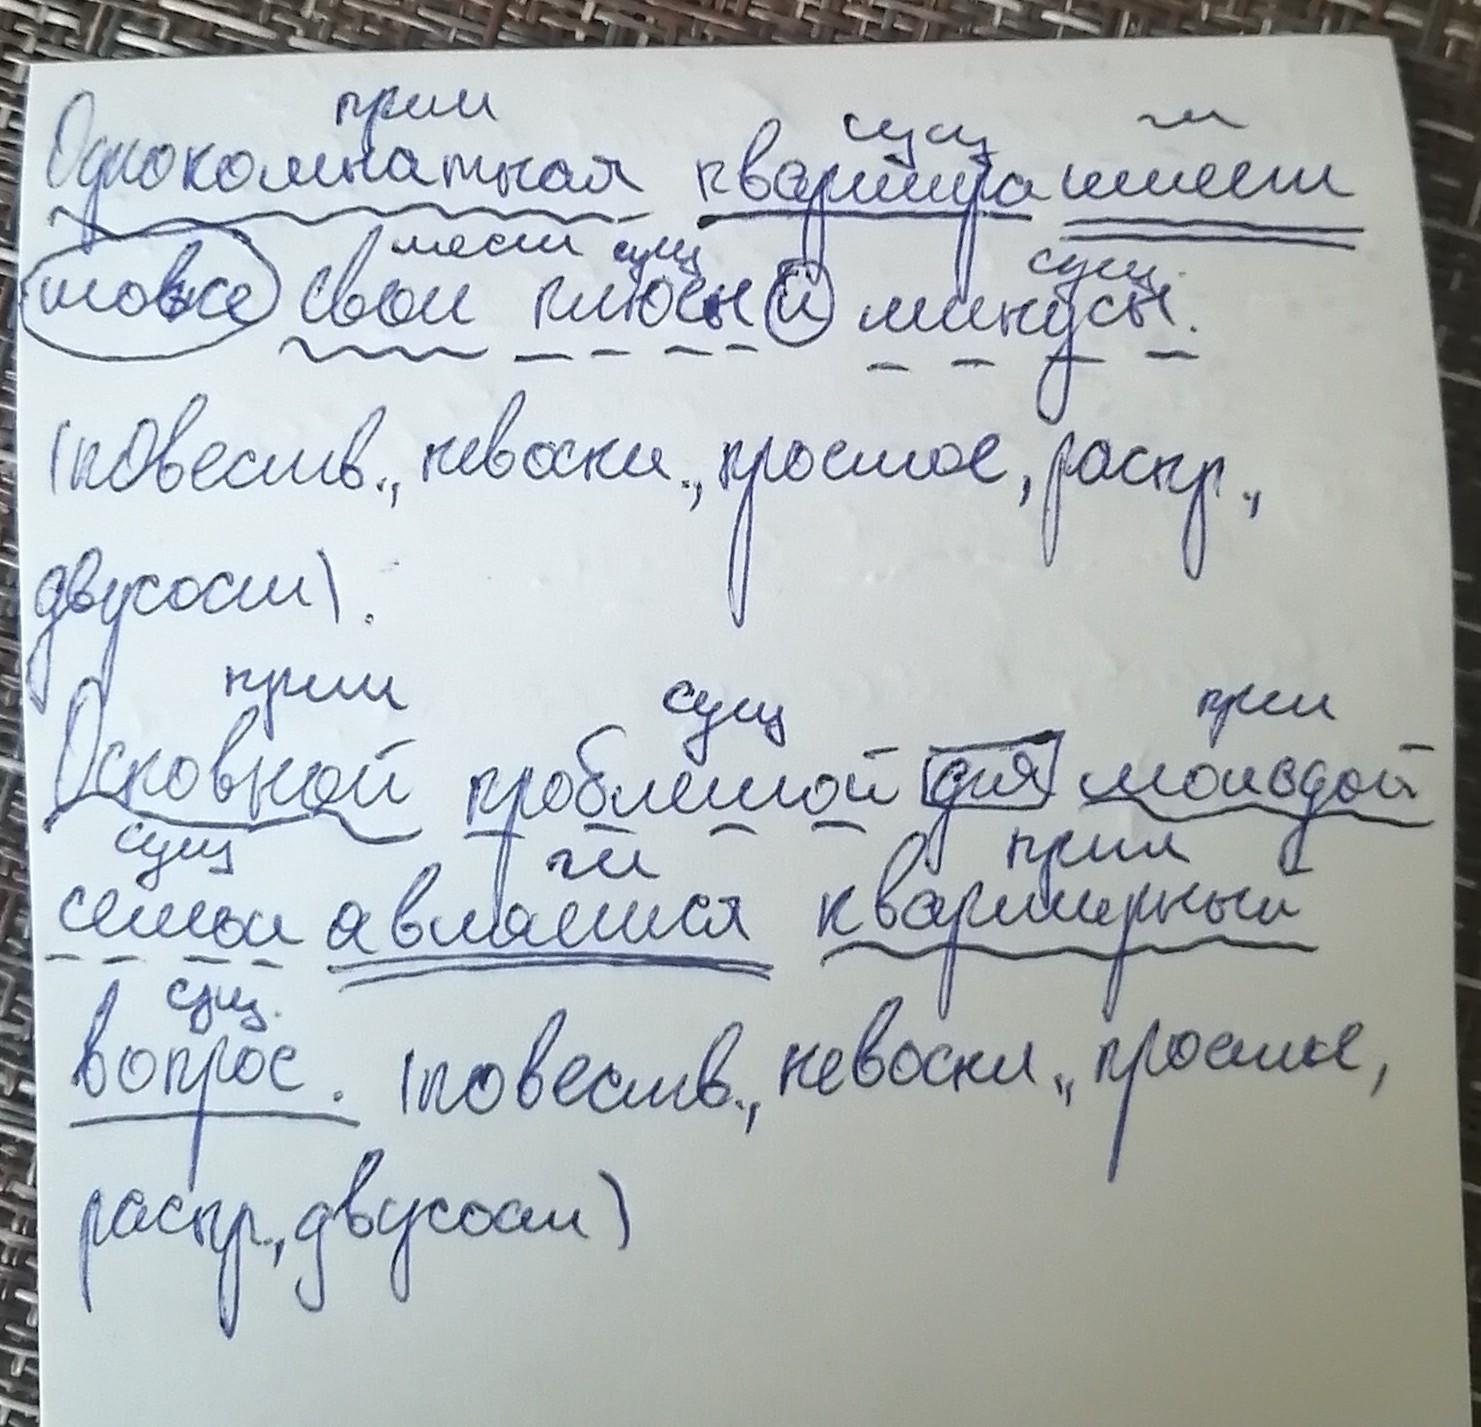 прил сущ гл
Однокомнатная квартира имеет
мест сущ сущ.
тоже свои плюсы и минусы.
(повеств., невоскл., простое, распр.,
двусост).
прил сущ прил
Основной проблемой для молодой
сущ гл прил
семьи является квартирный
сущ.
вопрос. (повеств., невоскл., простое,
распр., двусост)